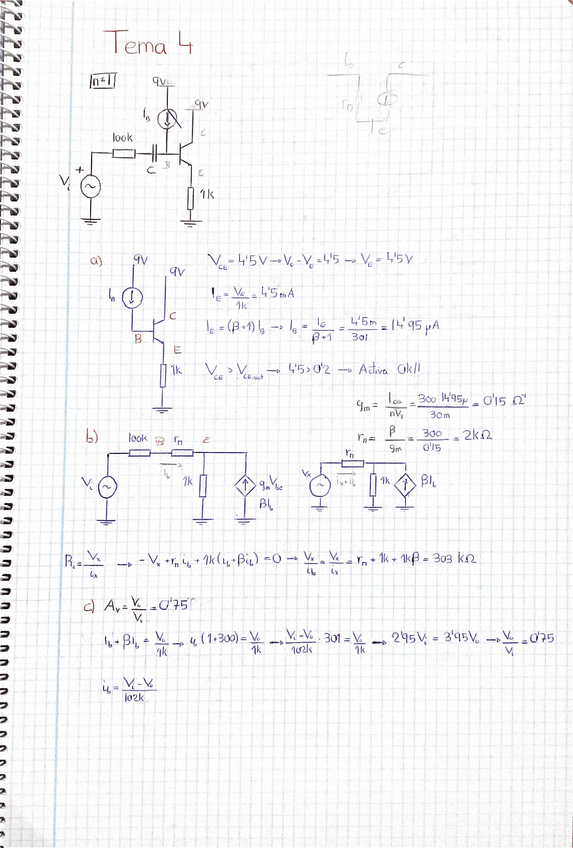 Tema 4
n=1
9V
9V
I_B
100k
C
B
C
E
V_i
+
1k
b c
r_π
e
a)
9V
9V
I_B
C
B
E
1k
V_CE = 4'5V → V_C - V_E = 4'5 → V_E = 4'5V
I_E = V_E/1k = 4'5mA
I_E = (β+1) I_B → I_B = I_E/β+1 = 4'5m/301 = 14'95 μA
V_CE > V_CEsat → 4'5 > 0'2 → Activa Ok!!
g_m = I_CQ/nV_t = 300·14'95μ/30m = 0'15 Ω⁻¹
r_π = β/g_m = 300/0'15 = 2kΩ
b)
100k B r_π E
i_b
V_i
1k
g_m V_be
βi_b
r_π
V_x
i_x=i_b
1k
βi_b
R_i = V_x/i_x → -V_x + r_π i_b + 1k(i_b + βi_b) = 0 → V_x/i_b = V_x/i_x = r_π + 1k + 1kβ = 303 kΩ
c) A_v = V_o/V_i = 0'75
i_b + βi_b = V_o/1k → i_b (1+300) = V_o/1k → V_i - V_o/102k · 301 = V_o/1k → 2'95V_i = 3'95V_o → V_o/V_i = 0'75
i_b = V_i - V_o/102k